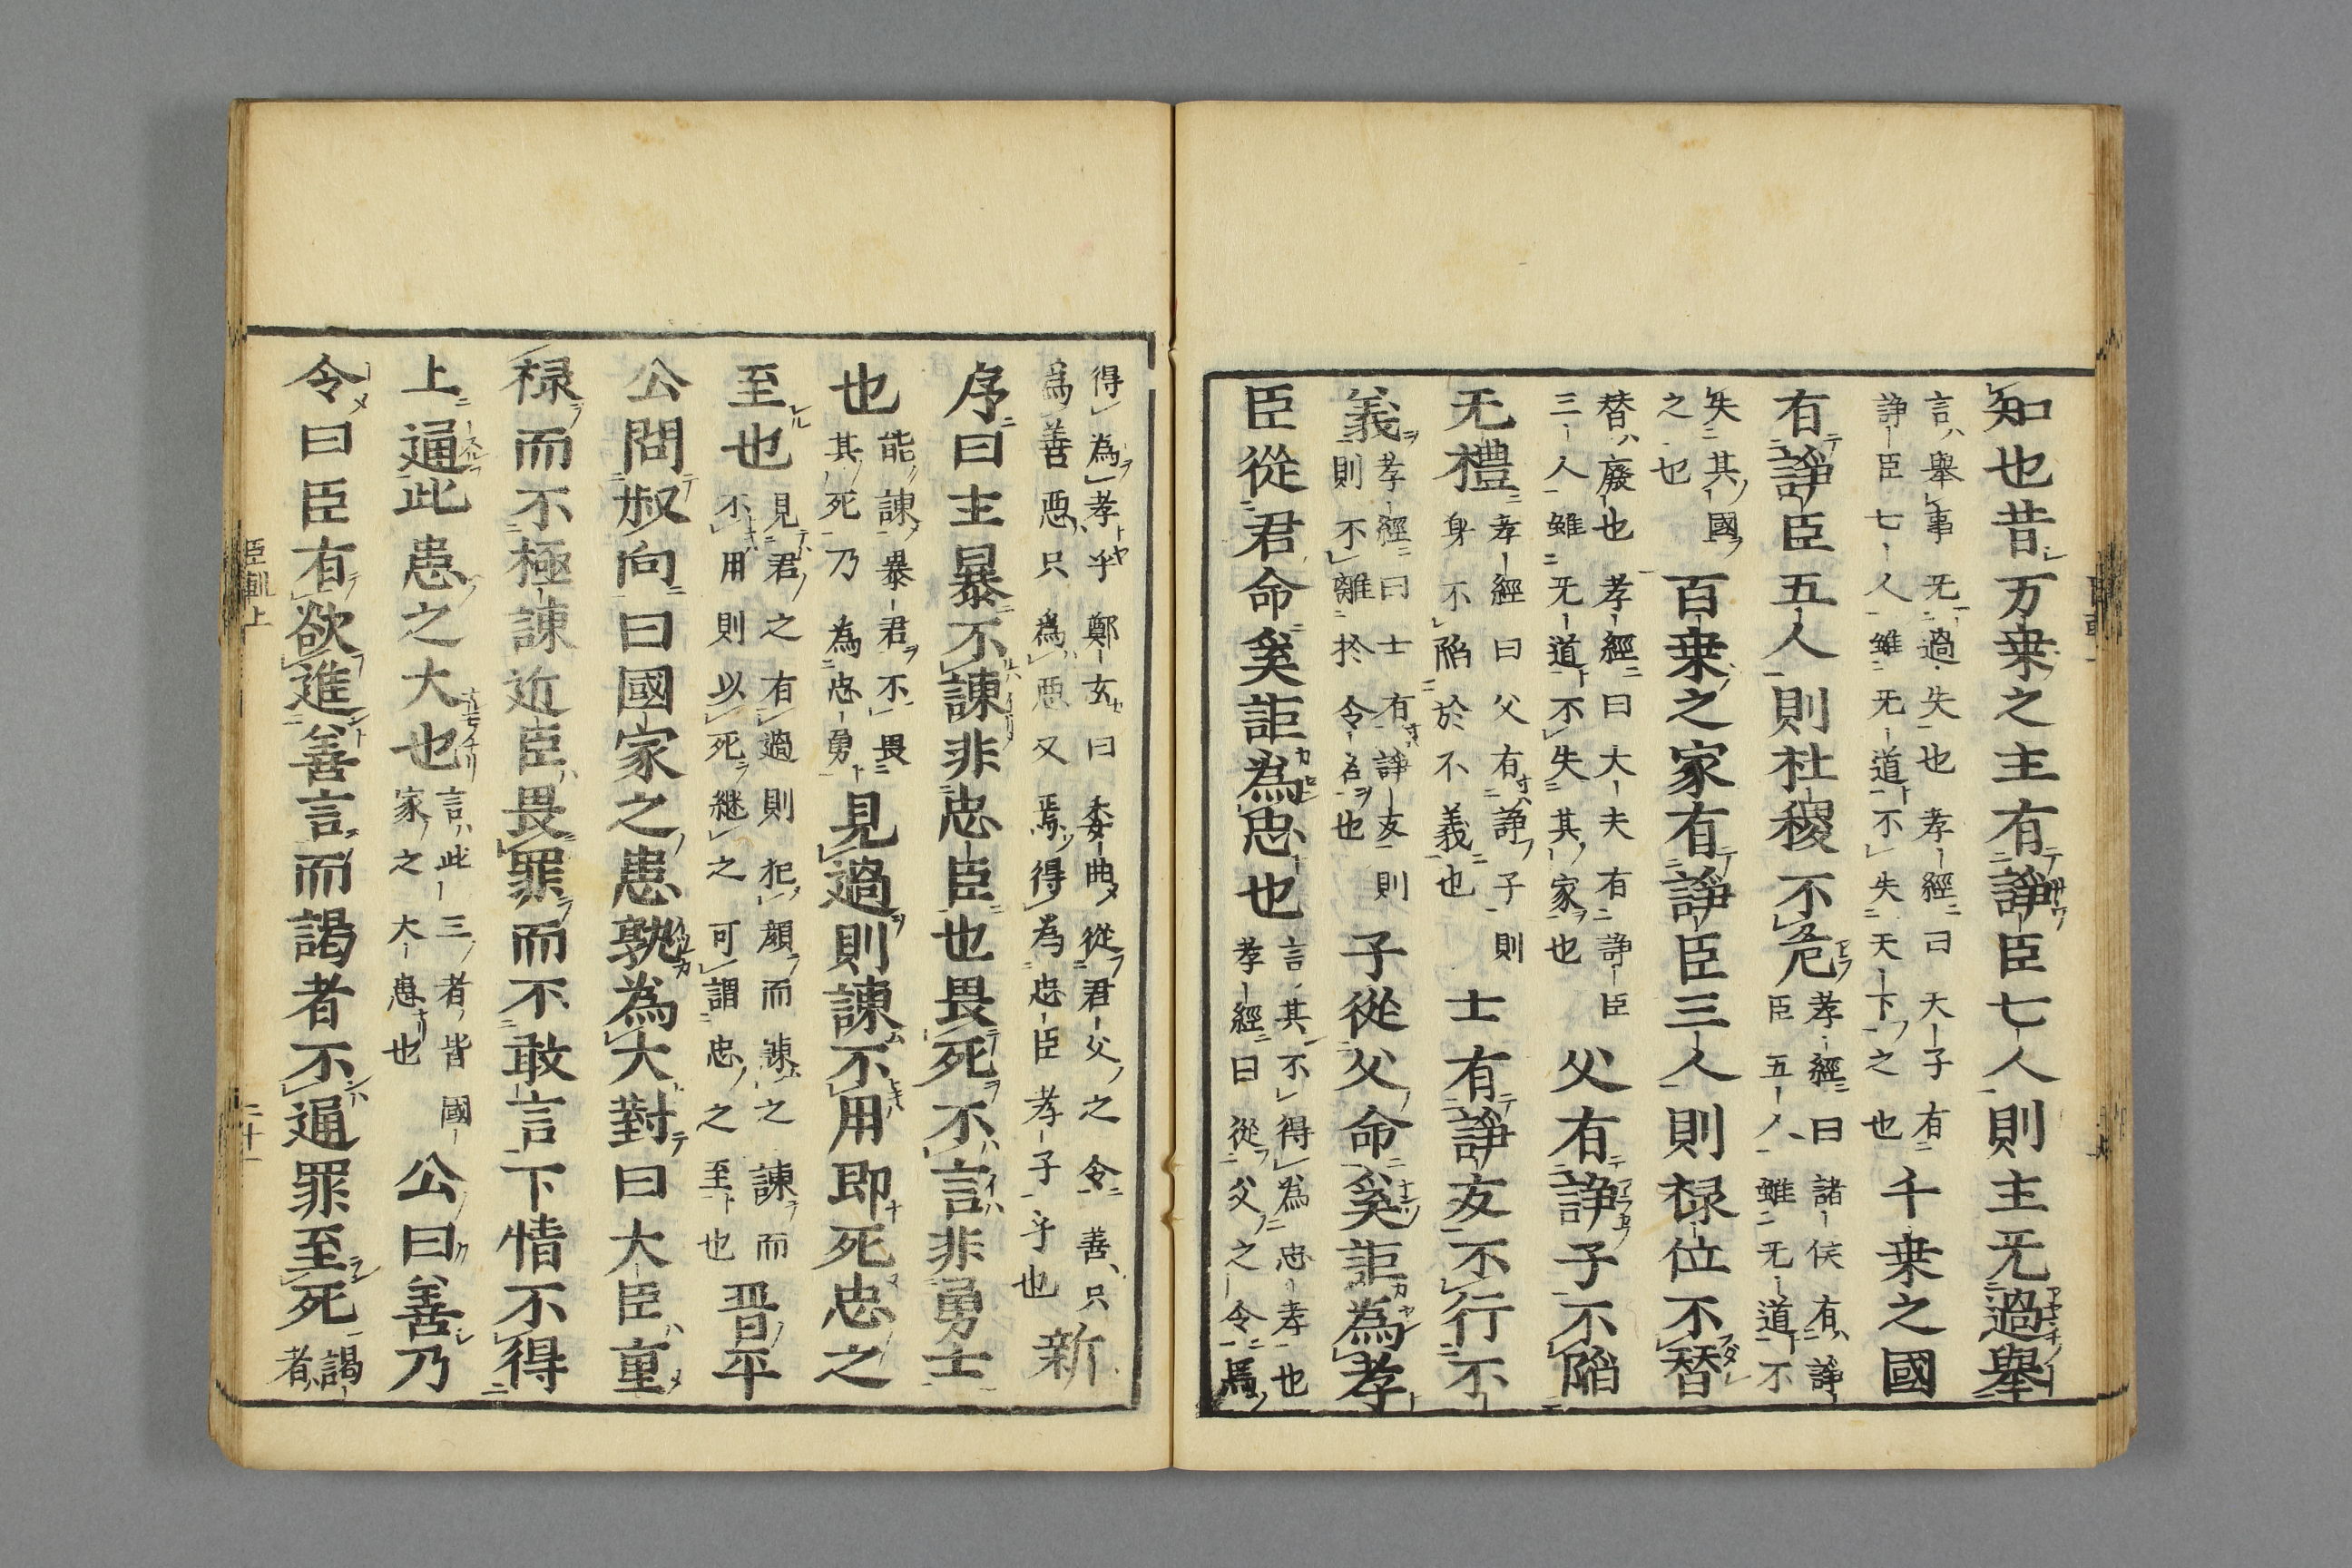 知也昔万乗之主有諍臣七人則主旡過舉
言舉事旡過失也孝經曰天子有
諍臣七人雖旡道不失天下之也
千乗之國
有諍臣五人則社稷不危
孝經曰諸侯有諍
臣五人雖旡道不
失其國
之也
百乗之家有諍臣三人則禄位不替
替廢也孝經曰大夫有諍臣
三人雖旡道不失其家也
父有諍子不陥
无禮
孝經曰父有諍子則
身不陥於不義也
士有諍友不行不
義
孝經曰士有諍友則
則不離於令名也
子從父命奚詎為孝
臣從君命奚詎為忠也
言其不得為忠孝也
孝經曰從父之令焉
得為孝乎鄭玄曰委曲從君父之令善只
為善惡只為惡又焉得為忠臣孝子乎也
新
序曰主暴不諫非忠臣也畏死不言非勇士
也
能諫暴君不畏
其死乃為忠勇
見過則諫不用即死忠之
至也
見君之有過則犯顔而諫之諫而
不用則以死継之可謂忠之至也
晋平
公問叔向曰國家之患孰為大對曰大臣重
禄而不極諫近臣畏罪而不敢言下情不得
上通此患之大也
言此三者皆國
家之大患也
公曰善乃
令曰臣有欲進善言而謁者不通罪至死
謁
者
臣軌上
二十一